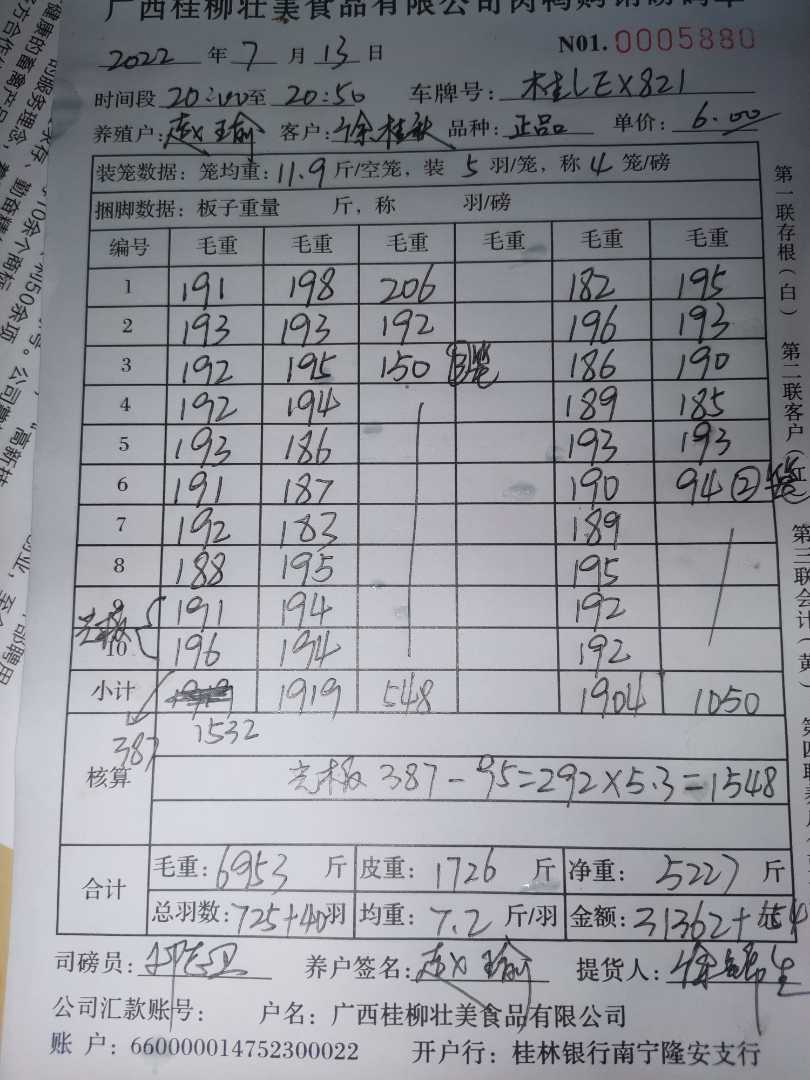 广西桂柳壮美食品有限公司肉鸭购销磅码单
2022 年 7 月 13 日 N01. 0005880
时间段 20:00 至 20:50 车牌号: 桂LEX821
养殖户: 赵瑜 客户: 徐桂秋 品种: 正品 单价: 6.00
装笼数据: 笼均重: 11.9 斤/空笼, 装 5 羽/笼, 称 4 笼/磅
捆脚数据: 板子重量 斤, 称 羽/磅
编号 毛重 毛重 毛重 毛重 毛重 毛重
1 191 198 206 182 195
2 193 193 192 196 193
3 192 195 150 ③笼 186 190
4 192 194 189 185
5 193 186 193 193
6 191 187 190 94 ②笼
7 192 183 189
8 188 195 195
9 191 194 192
光板 10 196 194 192
小计 1919 548 1904 1050
387 1532
核算 光板 387-95=292×5.3=1548
合计 毛重: 6953 斤 皮重: 1726 斤 净重: 5227 斤
总羽数: 725+40 羽 均重: 7.2 斤/羽 金额: 31362+ 元
司磅员: 养户签名: 赵瑜 提货人:
公司汇款账号: 户名: 广西桂柳壮美食品有限公司
账 户: 660000014752300022 开户行: 桂林银行南宁隆安支行
第一联存根(白) 第二联客户(红) 第三联会计(黄)